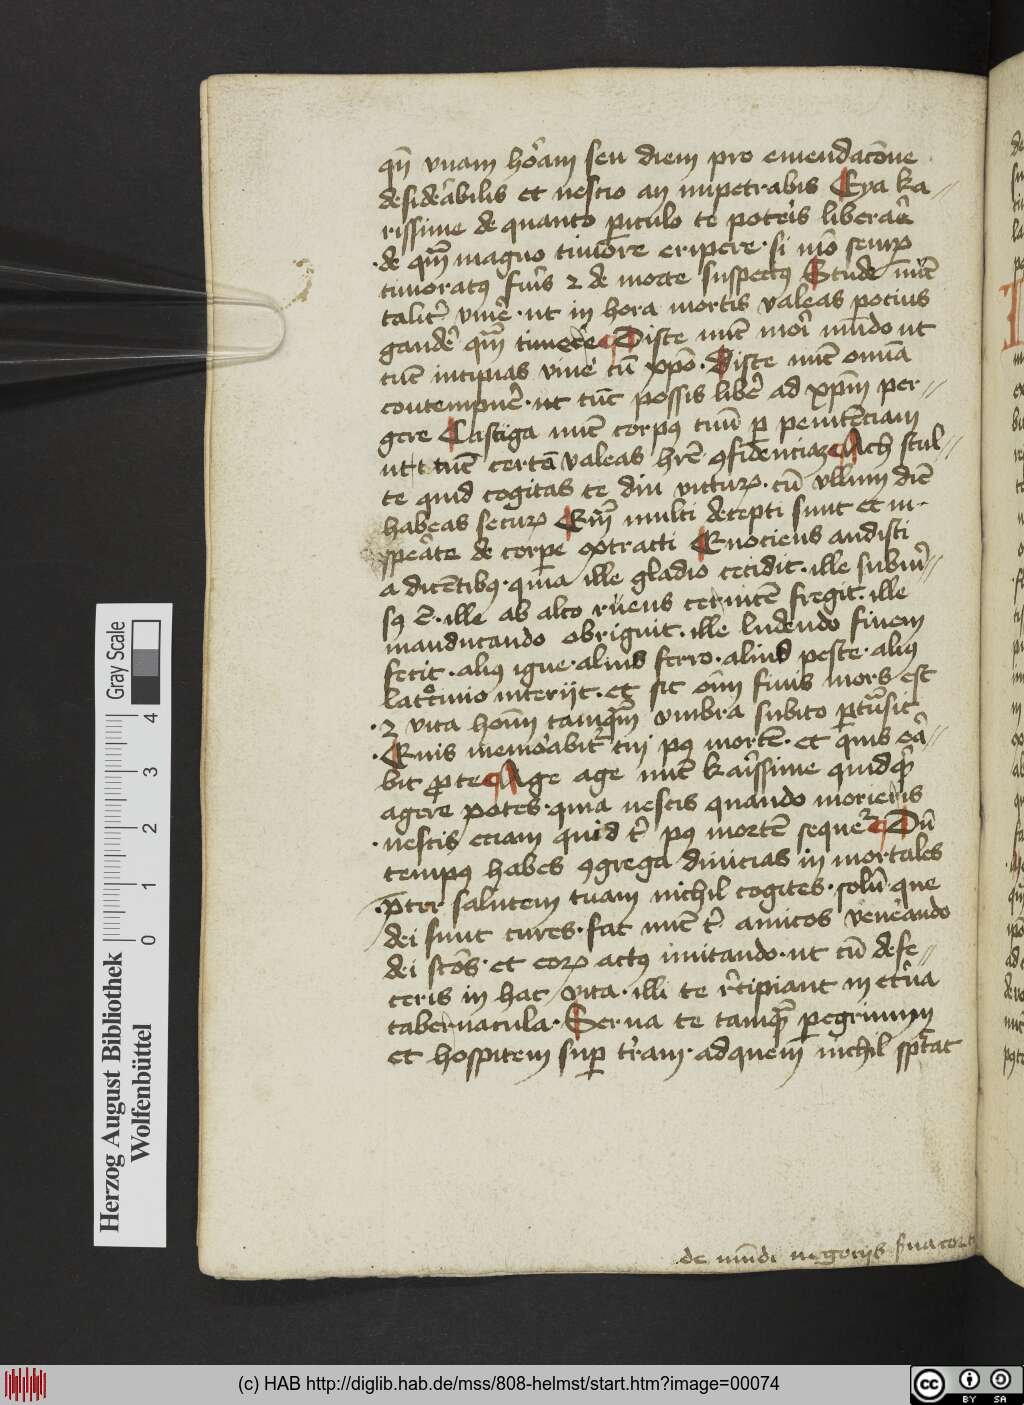 qn̄ vnam hōram seu diem pro emendacōne
desidēabilis et nescio an impetrabis Eya ka-
rissime de quanto piculo te potēis liberarē
de qm̄ magno timore eripere · si mō semp
timoratꝯ fūis ⁊ de morte suspectꝯ Stude nūc
talit̄ viuē · ut in hora mortis valeas pocius
gandē qm̄ timere Disce nūc morī mūdo ut
tūc incipias viuē cū xp̄o · Disce nūc omīa
contempnē · ut tūc possis libē ad xp̄m per-
gere Castiga nūc corpꝯ tuū p penitēciam
ut tūc certā valeas hr̄e ꝯfidenciaz Ach stul-
te quid cogitas te diu victurꝝ · cū vllum diē
habeas securꝝ Qm̄ multi decepti sunt et in-
speāte de corpe extracti Quociens audisti
a dicētibꝯ · quia ille gladio cecidit · ille submr̄-
sꝯ ē · ille ab alto ruens ceruicē fregit · ille
manducando obriguit · ille ludendo finem
fecit · aliꝯ igne · alius ferro · alius peste · aliꝯ
latōcinio interijt · et sic oīm finis mors est
⁊ vita hoīm tamqm̄ vmbra subito ptūsit
Quis memōabit̄ tui pꝯ mortē · et quis oā-
bit pro te Age age nūc kārissime quidq̄
agere potes · quia nescis quando morieris
nescis eciam quid t̄ pꝯ mortē sequet̄ Dū
tempꝯ habes ꝯgrega diuicias in mortales
p̄ter salutem tuam nichil cogites · solū que
dei sunt cures · fac nūc t̄ amicos venēando
dei scōs · et eorꝝ actꝯ imitando · ut cū defe-
ceris in hac vita · illi te r̄cipiant in et̄na
tabernacula · Serua te tamqm̄ pegrinum
et hospitem sup tr̄am · ad quem nichil spectat
de mūdi negocijs sua cor
Herzog August Bibliothek
Wolfenbüttel
Gray Scale
0 1 2 3 4
(c) HAB http://diglib.hab.de/mss/808-helmst/start.htm?image=00074
cc BY SA